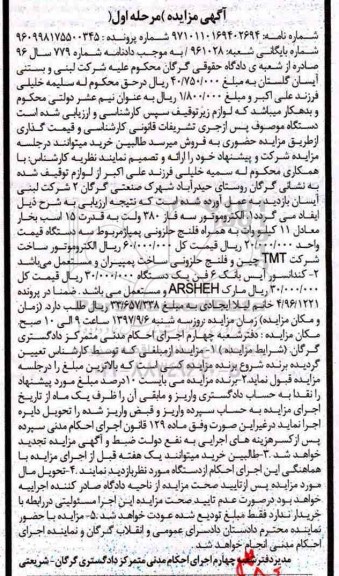 آگهی مزایده )مرحله اول(
شماره نامه: ۹۷۱۰۱۱۰۱۶۹۴۰۲۶۹۴ شماره پرونده : ۹۶۰۹۹۸۱۷۵۵۰۰۳۴۵
شماره بایگانی شعبه: ۹۶۱۰۲۸ / به موجب دادنامه شماره ۷۷۹ سال ۹۶
صادره از شعبه ی دادگاه حقوقی گرگان محکوم علیه شرکت لبنی و بستنی
آیسان گلستان به مبلغ ۴۰/۷۵۰/۰۰۰ ریال درحق محکوم له سلیمه خلیلی
فرزند علی اکبر و مبلغ ۱/۸۰۰/۰۰۰ ریال به عنوان نیم عشر دولتی محکوم
و بدهکار میباشد که لوازم زیر توقیف سپس کارشناسی و ارزیابی شده است
دستگاه موصوف پس ازجری تشریفات قانونی کارشناسی و قیمت گذاری
ازطریق مزایده حضوری به فروش میرسد طالبین خرید میتوانند درجلسه
مزایده شرکت و پیشنهاد خود را ارائه و تصمیم نمایند نظریه کارشناس: با
همکاری محکوم له سمیه خلیلی فرزند علی اکبر از لوازم توقیف شده
به نشانی گرگان روستای حیدرآباد شهرک صنعتی گرگان ۲ شرکت لبنی
آیسان بازدید به عمل آورده شده است که نتیجه ارزیابی به شرح ذیل
ایفاد می گردد۱) الکتروموتور سه فاز ۳۸۰ ولت به قدرت ۱۵ اسب بخار
معادل ۱۱ کیلو وات به همراه فلنچ حلزونی پمپازمربوط سه دستگاه قیمت
واحد ۲۰/۰۰۰/۰۰۰ ریال قیمت کل ۶۰/۰۰۰/۰۰۰ ریال الکتروموتور ساخت
شرکت TMT چین و فلنچ حلزونی ساخت پمپیران و مستعمل می‌باشد
۲- کندانسور آیس بانک ۶ فن یک دستگاه ۳۰/۰۰۰/۰۰۰ ریال قیمت کل
۳۰/۰۰۰/۰۰۰ ریال مارک ARSHEH و مستعمل می باشد. ضمنا در پرونده
۴/۹۶/۱۲۲۱ خانم لیلا ایجادی به مبلغ ۳۳/۶۵۷/۳۳۸ ریال طلب دارد. (زمان
و مکان مزایده) زمان مزایده روزسه شنبه ۱۳۹۷/۹/۶ ساعت ۹ الی ۱۰ صبح
مکان مزایده : دفترشعبه چهارم اجرای احکام مدنی متمرکز دادگستری
گرگان (شرایط مزایده ) ۱-مزایده ازمبلغی که توسط کارشناس تعیین
گردیده برنده شروع برنده مزایده کسی است که بالاترین مبلغ را درجلسه
مزایده قبول نماید.۲-برنده مزایده می بایست ۱۰درصد مبلغ مورد پیشنهاد
را نقدا به حساب دادگستری واریز و مابقی آن را ظرف یک ماه از تاریخ
اجرای مزایده به حساب سپرده واریز و قبض واریز شده را تحویل دایره
اجرا نماید درغیراین صورت وفق ماده ۱۲۹ قانون اجرای احکام مدنی سپرده
پس ازکسرهزینه های اجرایی به نفع دولت ضبط و آگهی مزایده تجدید
خواهد شد.۳-طالبین خرید میتوانند یک هفته قبل از اجرای مزایده با
هماهنگی این اجرای احکام ازدستگاه مورد نظربازدید نمایند.۴-تحویل مال
مورد مزایده پس ازتایید صحت مزایده از ناحیه دادگاه صادر کننده اجراییه
خواهد بود درصورت عدم تایید صحت مزایده این اجرا مسئولیتی دررابطه با
خریدار ندارد فقط مبلغ تودیع شده عودت خواهد شد.۵-مزایده با حضور
نماینده محترم دادستان دادسرای عمومی و انقلاب گرگان و نماینده اجرای
احکام مدنی انجام خواهد شد
مدیردفترشعبه چهارم اجرای احکام مدنی متمرکز دادگستری گرگان - شریعتی